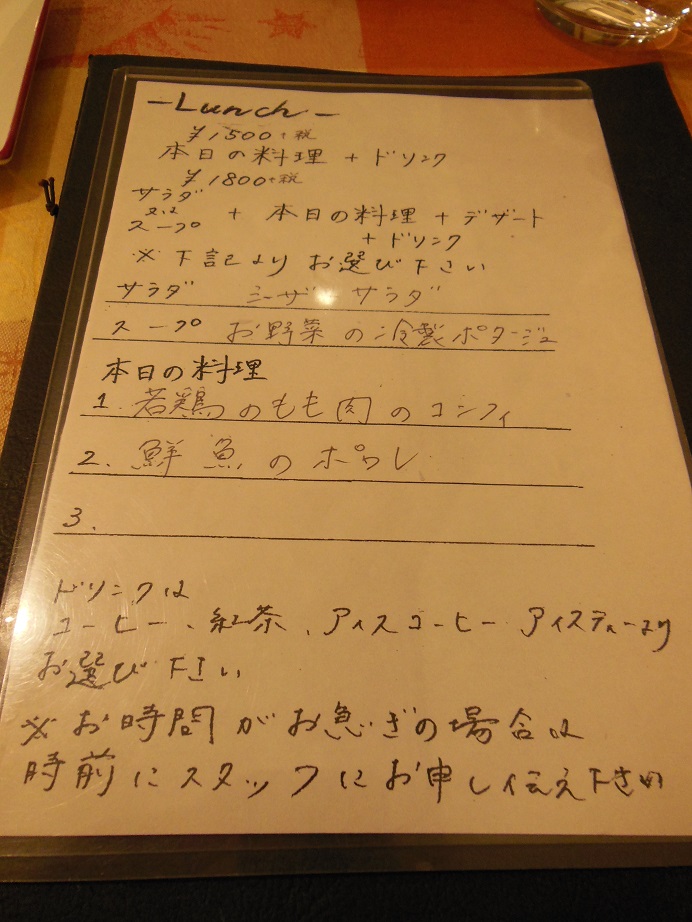 -Lunch-
¥1500+税
本日の料理 + ドリンク
¥1800+税
サラダ
又は
スープ
+ 本日の料理 + デザート
+ ドリンク
※下記よりお選び下さい
サラダ シーザーサラダ
スープ お野菜の冷製ポタージュ
本日の料理
1. 若鶏のもも肉のコンフィ
2. 鮮魚のポワレ
3.
ドリンクは
コーヒー、紅茶、アイスコーヒー アイスティーより
お選び下さい
※お時間がお急ぎの場合は
時前にスタッフにお申し伝え下さい